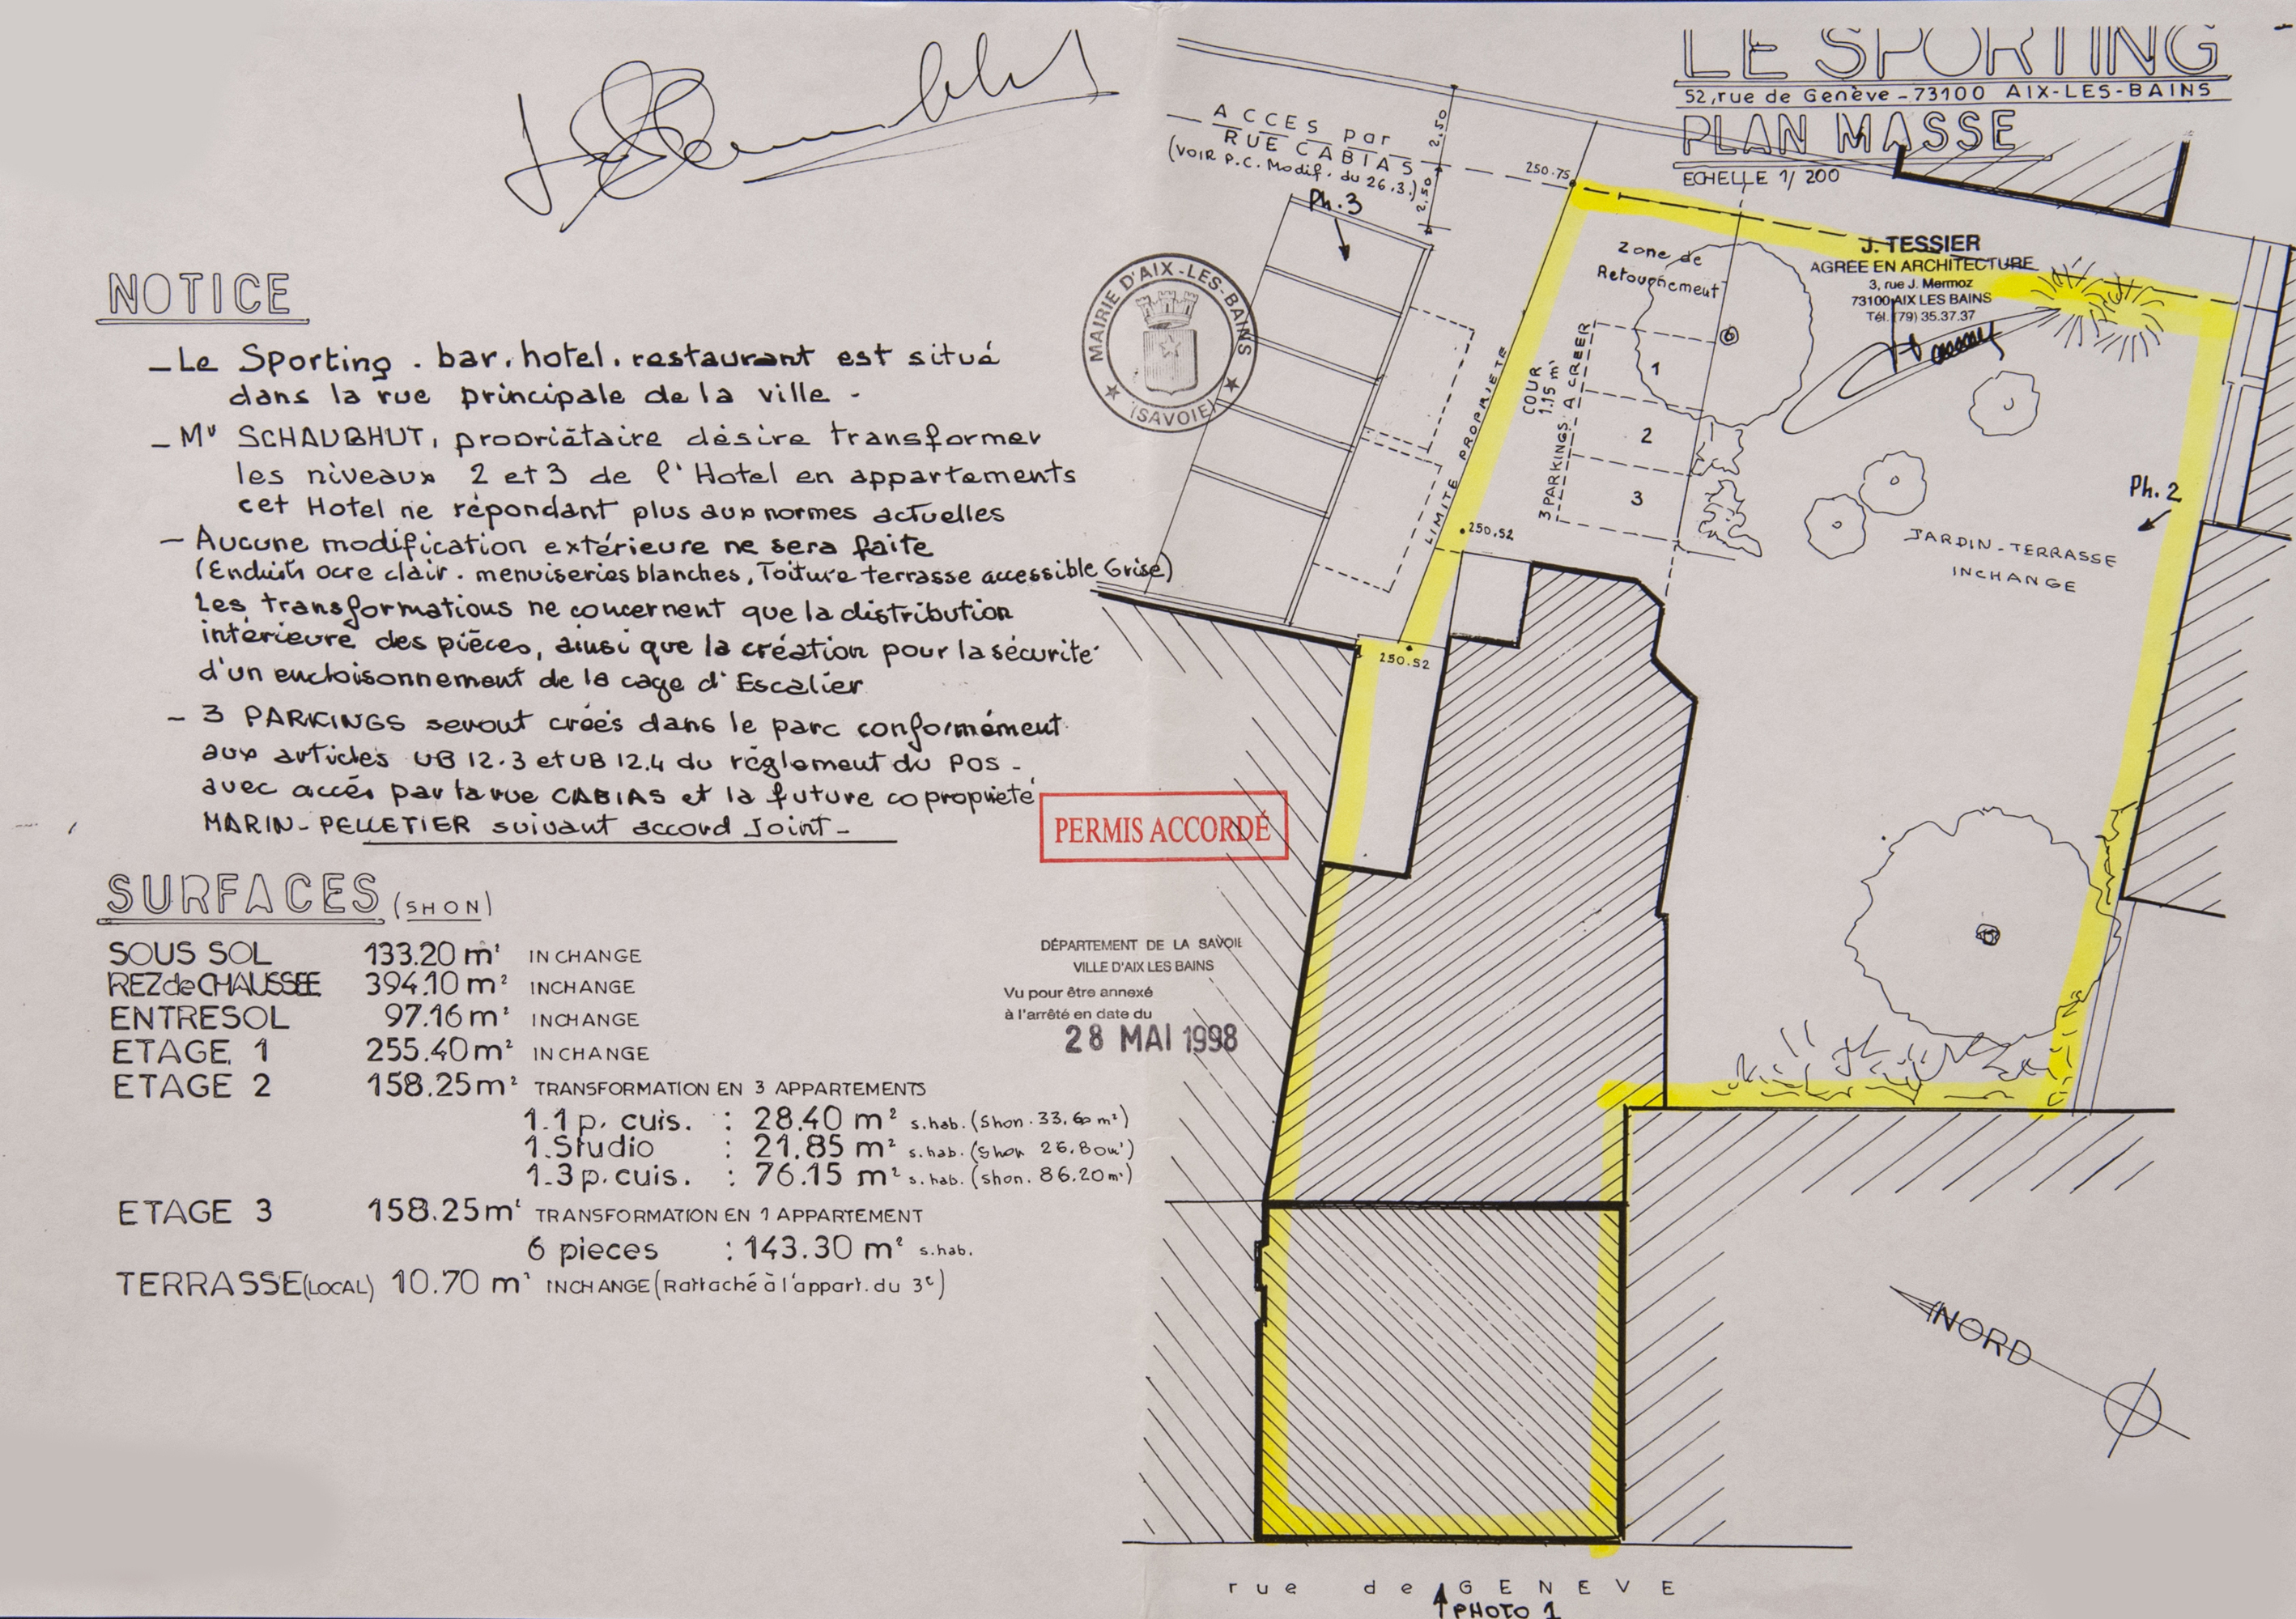 LE SPORTING
52, rue de Genève - 73100 AIX-LES-BAINS
PLAN MASSE
ECHELLE 1/200
NOTICE
- Le Sporting . bar . hotel . restaurant est situé
dans la rue principale de la ville -
- Mr SCHAUBHUT, propriétaire désire transformer
les niveaux 2 et 3 de l'Hotel en appartements
cet Hotel ne répondant plus aux normes actuelles
- Aucune modification extérieure ne sera faite
(Enduits ocre clair . menuiseries blanches, Toiture terrasse accessible Grise)
Les transformations ne concernent que la distribution
intérieure des pièces, ainsi que la création pour la sécurité
d'un encloisonnement de la cage d'Escalier
- 3 PARKINGS seront créés dans le parc conformément
aux articles UB 12.3 et UB 12.4 du réglement du POS -
avec accés par la rue CABIAS et la future copropriété
MARIN-PELLETIER suivant accord Joint -
SURFACES (SHON)
SOUS SOL 133.20 m² INCHANGE
REZ de CHAUSSEE 394.10 m² INCHANGE
ENTRESOL 97.16 m² INCHANGE
ETAGE 1 255.40 m² INCHANGE
ETAGE 2 158.25 m² TRANSFORMATION EN 3 APPARTEMENTS
1.1 p. cuis. : 28.40 m² s.hab. (Shon. 33.60 m²)
1.Studio : 21.85 m² s.hab. (Shon 26.80 m²)
1.3 p. cuis. : 76.15 m² s.hab. (shon. 86.20 m²)
ETAGE 3 158.25 m² TRANSFORMATION EN 1 APPARTEMENT
6 pieces : 143.30 m² s.hab.
TERRASSE (LOCAL) 10.70 m² INCHANGE (Rattaché à l'appart. du 3e)
MAIRIE D'AIX-LES-BAINS
(SAVOIE)
PERMIS ACCORDÉ
DÉPARTEMENT DE LA SAVOIE
VILLE D'AIX LES BAINS
Vu pour être annexé
à l'arrêté en date du
28 MAI 1998
ACCES par
RUE CABIAS
(VOIR P.C. Modif. du 26.3.)
2.50
2.50
Ph.3
250.75
Zone de
Retournement
J. TESSIER
AGRÉE EN ARCHITECTURE
3, rue J. Mermoz
73100 AIX LES BAINS
Tél. (79) 35.37.37
LIMITE PROPRIETE
COUR
1.15 m²
3 PARKINGS A CREER
1
2
3
250.52
250.52
Ph.2
JARDIN-TERRASSE
INCHANGE
NORD
rue de GENEVE
PHOTO 1